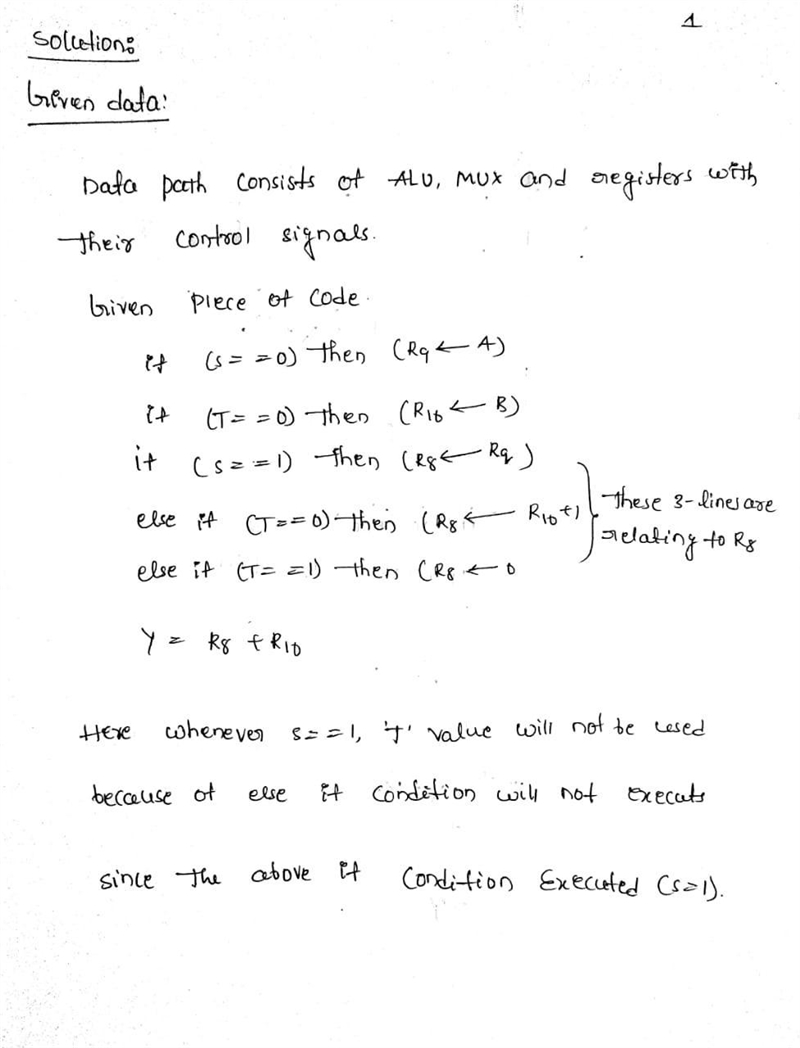 1
Solution:
Given data:
Data path consists of ALU, MUX and registers with
their control signals.
Given piece of code.
if (s = = 0) then (R9 ← A)
if (T = = 0) then (R10 ← B)
if (s = = 1) then (R8 ← R9)
else if (T = = 0) then (R8 ← R10 + 1
else if (T = = 1) then (R8 ← 0
These 3-lines are
relating to R8
Y = R8 + R10
Here whenever s = = 1, 'T' value will not be used
because of else if condition will not execute
since the above if condition Executed (s=1).